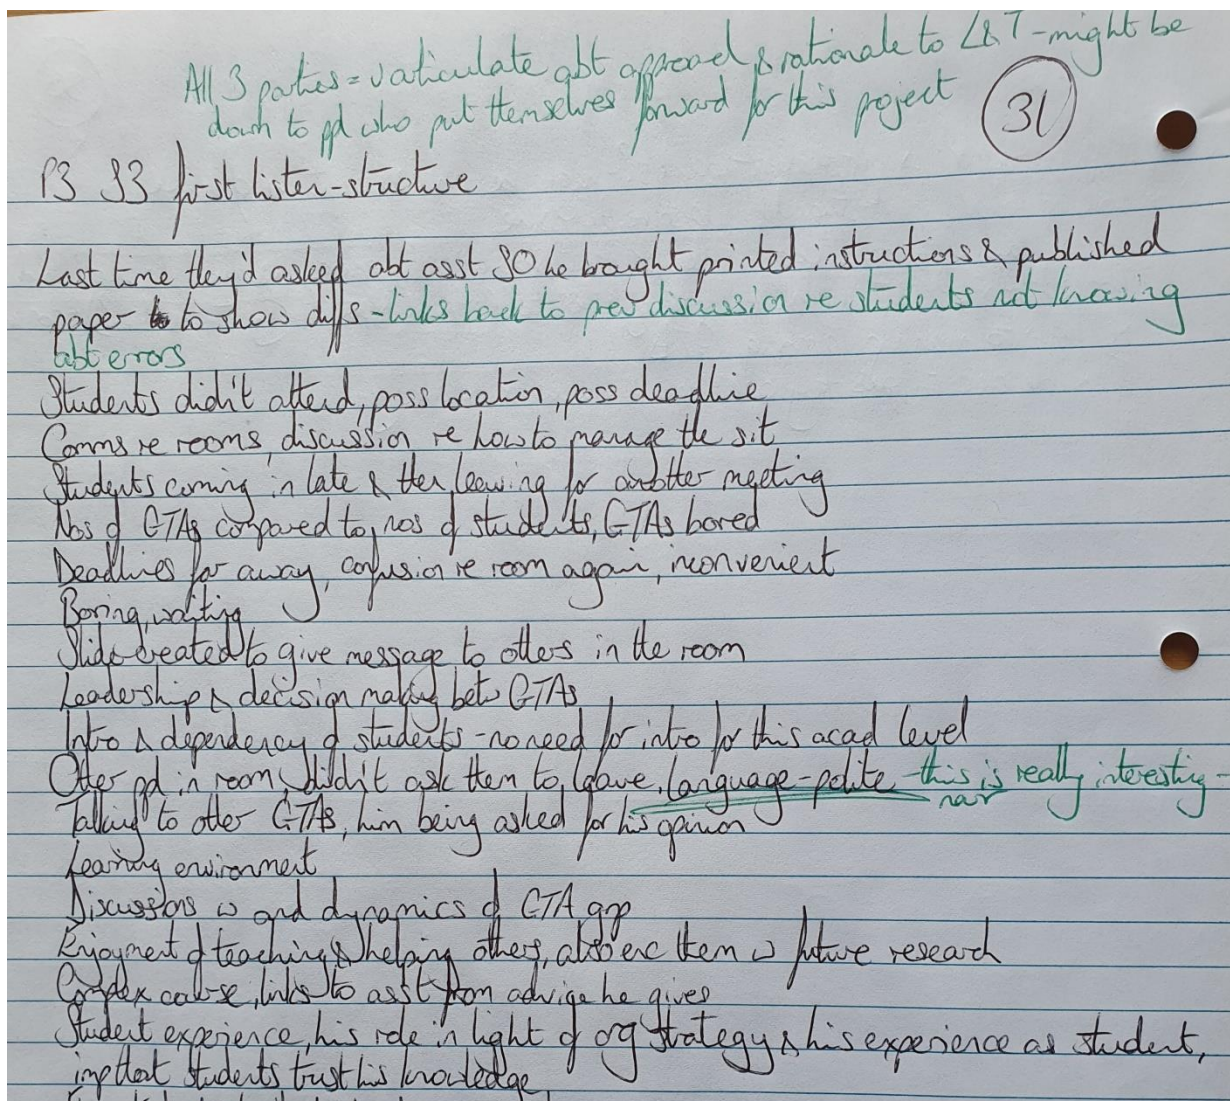 All 3 parties = v articulate abt approach & rationale to L&T - might be
down to ppl who put themselves forward for this project
31
P3 S3 first listen - structure
Last time they'd asked abt asst SO he brought printed instructions & published
paper to show diffs - links back to prev discussion re students not knowing
abt errors
Students didn't attend, poss location, poss deadline
Comms re rooms, discussion re how to manage the sit
Students coming in late & then leaving for another meeting
Nos of GTAs compared to nos of students, GTAs bored
Deadlines far away, confusion re room again, inconvenient
Boring, waiting
Slide created to give message to others in the room
Leadership & decision making betw GTAs
Intro & dependency of students - no need for intro for this acad level
Other ppl in room, didn't ask them to leave, language - polite - this is really interesting -
nar
Talking to other GTAs, him being asked for his opinion
Learning environment
Discussions w and dynamics of GTA grp
Enjoyment of teaching & helping others, also enc them w future research
Complex course, links to asst from advice he gives
Student experience, his role in light of org strategy & his experience as student,
imp that students trust his knowledge